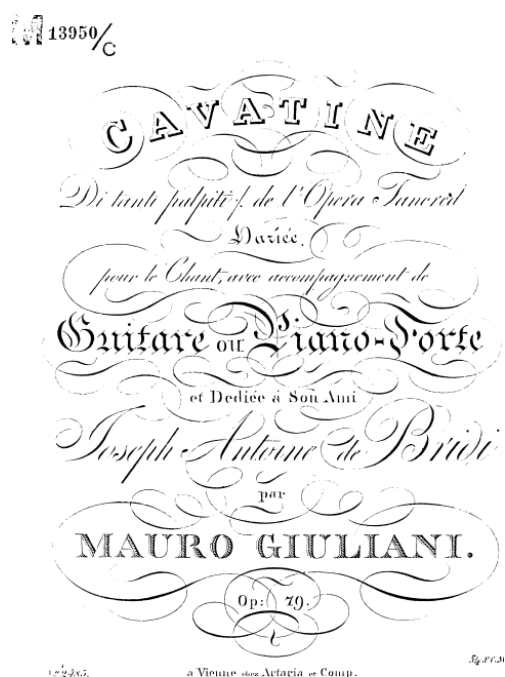 13950/C
CAVATINE
Di tanti palpiti /: de l'Opera Tancred
Variée.
pour le Chant, avec accompagnement de
Guitare ou Piano-Forte
et Dediée à Son Ami
Joseph Antoine de Bridi
par
MAURO GIULIANI.
Op: 79.
a Vienne chez Artaria et Comp.